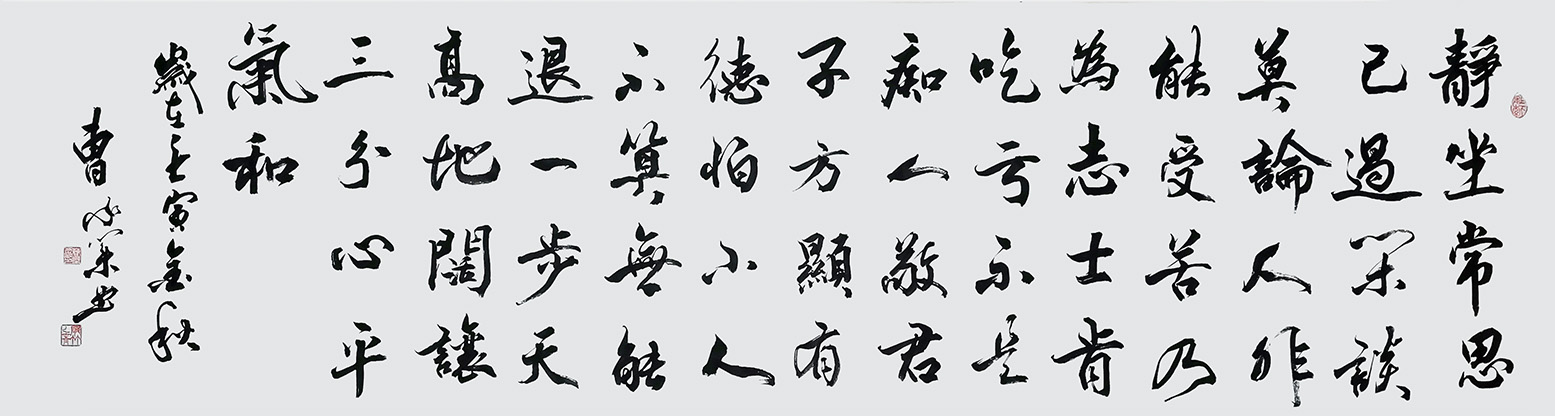 靜坐常思
己過閑談
莫論人非
能受苦乃
為志士肯
吃亏不是
痴人敬君
子方顯有
德怕小人
不算無能
退一步天
高地闊讓
三分心平
氣和
歲在壬寅金秋
曹 書